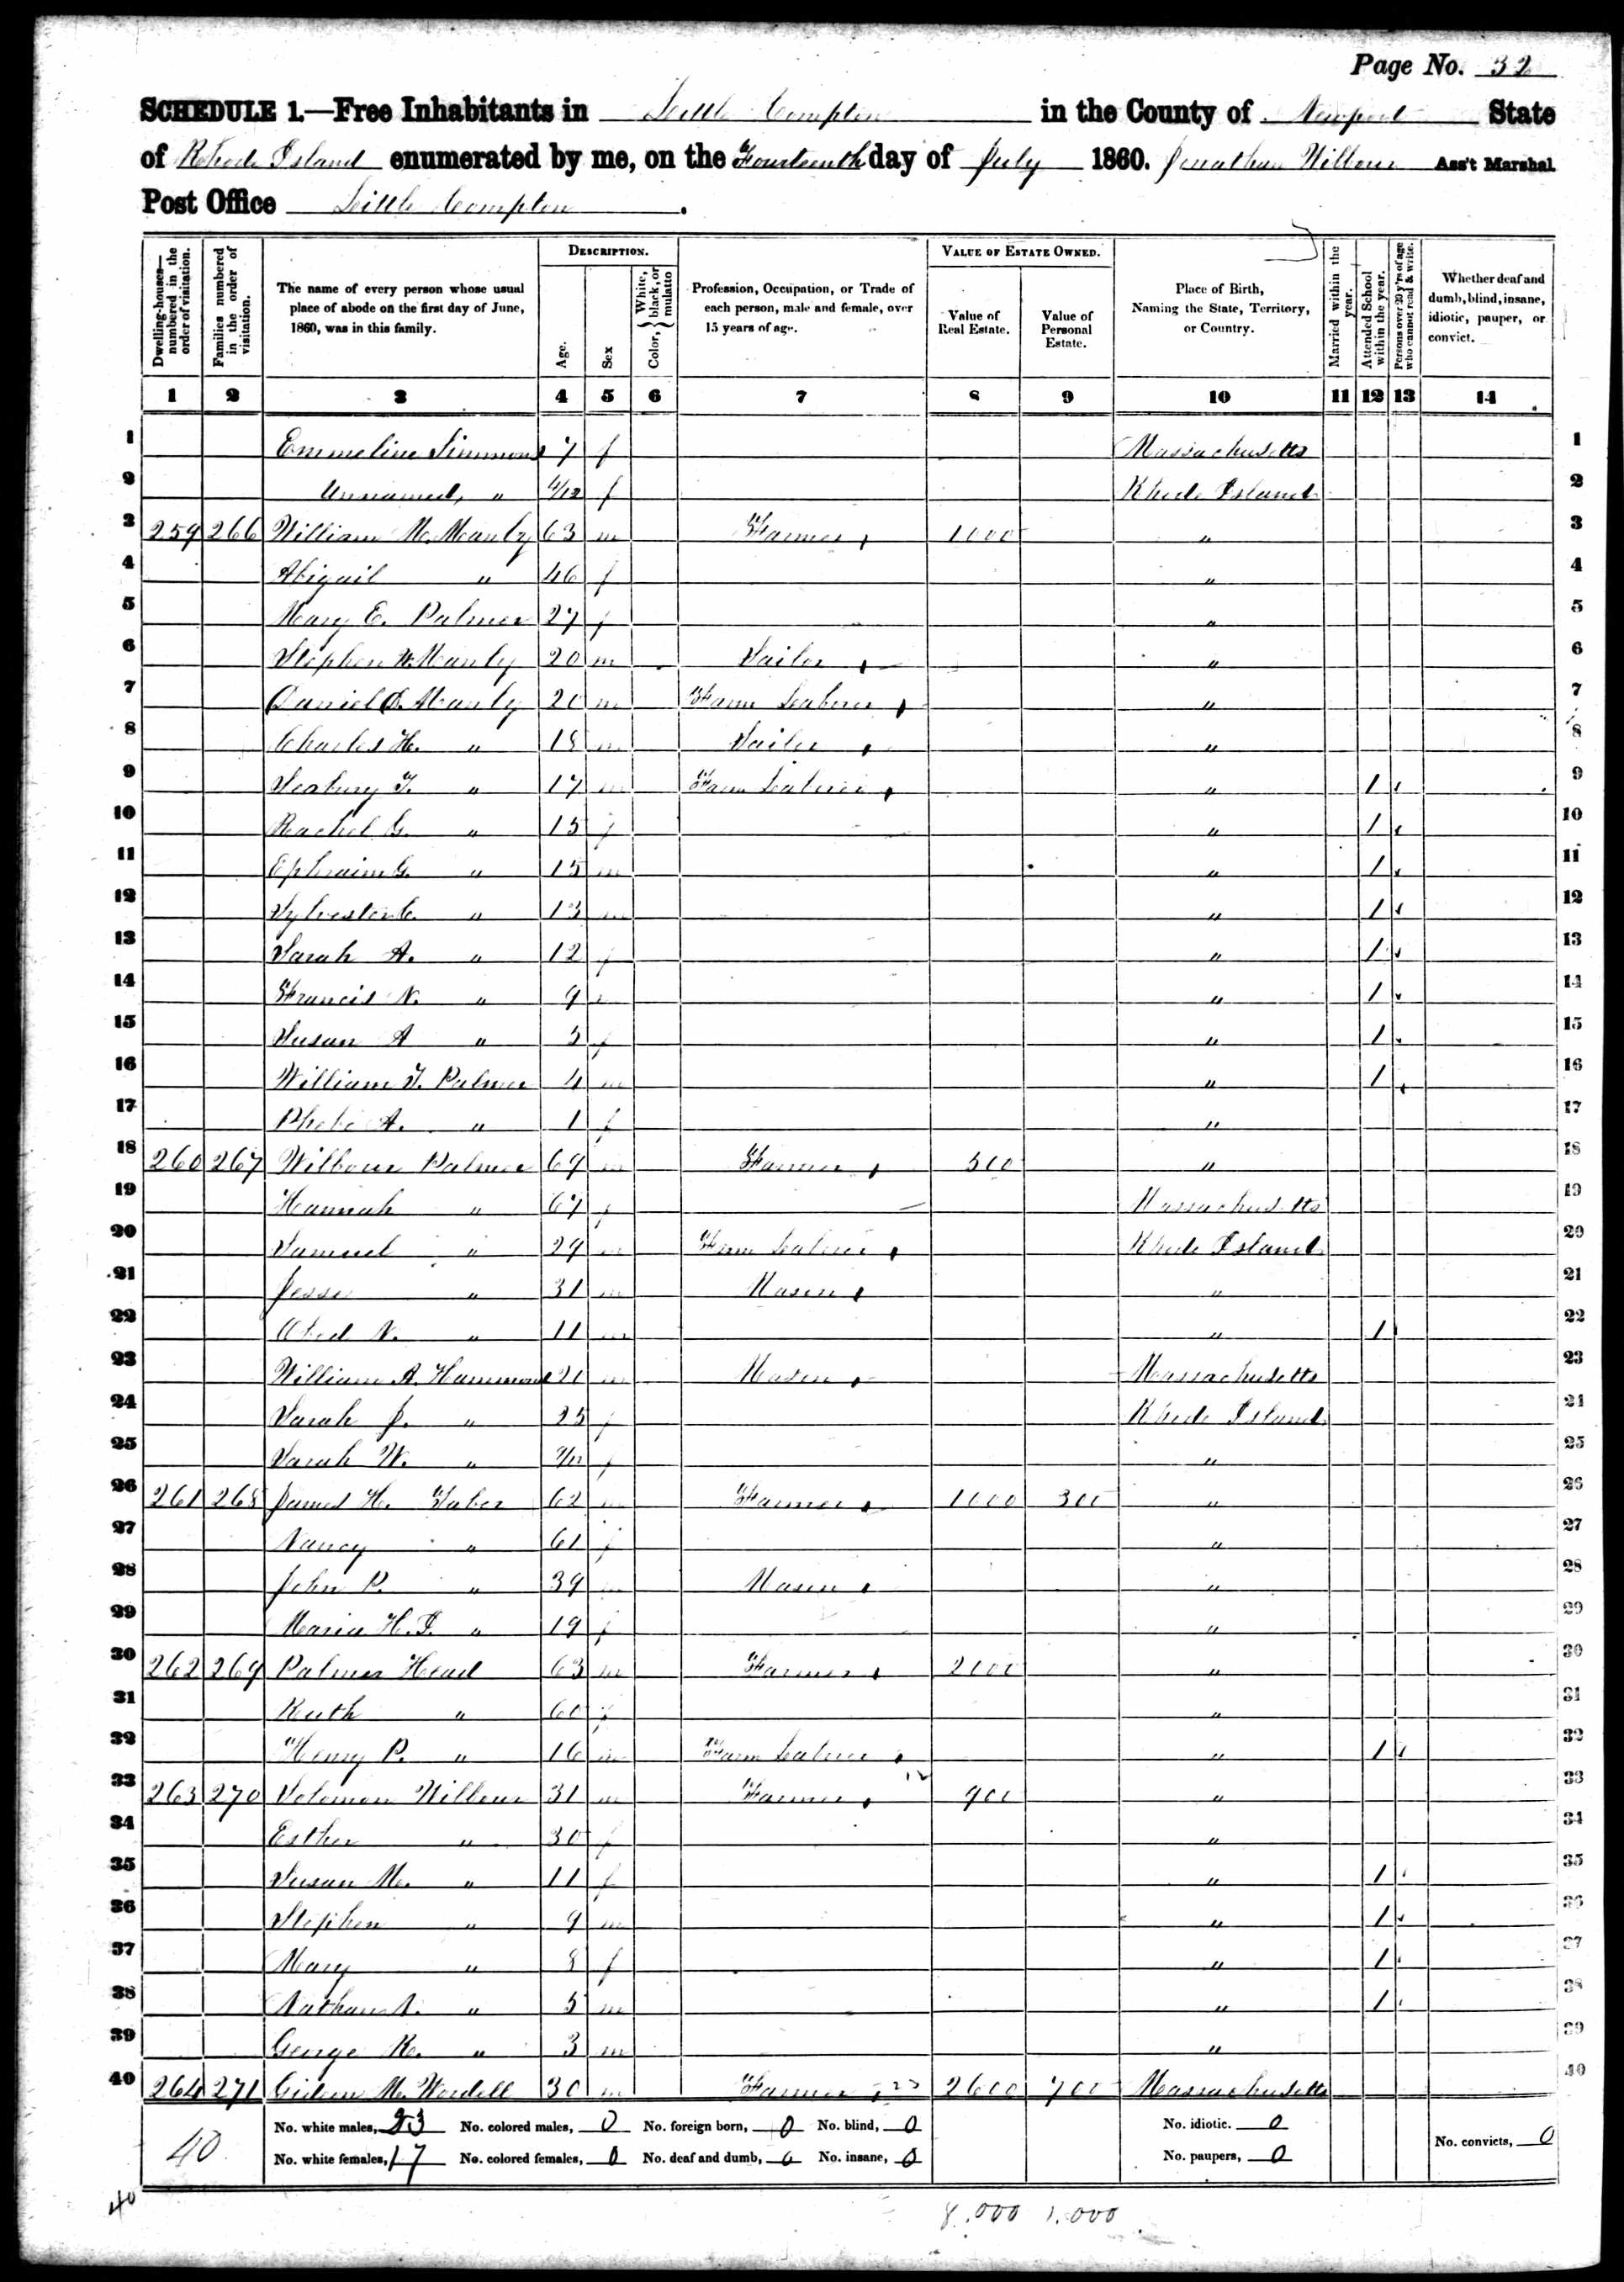 Page No. 32
SCHEDULE 1.—Free Inhabitants in Little Compton in the County of Newport State
of Rhode Island enumerated by me, on the Fourteenth day of July 1860. Jonathan Wilbour Ass't Marshal.
Post Office Little Compton.
Dwelling-houses—numbered in the order of visitation.
Families numbered in the order of visitation.
The name of every person whose usual place of abode on the first day of June, 1860, was in this family.
DESCRIPTION.
Age.
Sex
Color, { White, black, or mulatto
Profession, Occupation, or Trade of each person, male and female, over 15 years of age.
VALUE OF ESTATE OWNED.
Value of Real Estate.
Value of Personal Estate.
Place of Birth, Naming the State, Territory, or Country.
Married within the year.
Attended School within the year.
Persons over 20 y'rs of age who cannot read & write.
Whether deaf and dumb, blind, insane, idiotic, pauper, or convict.
1 2 3 4 5 6 7 8 9 10 11 12 13 14
1 Emmeline Simmons 7 f Massachusetts 1
2 Unnamed, " 4/12 f Rhode Island 2
3 259 266 William M. Manly 63 m Farmer 1000 " 3
4 Abigail " 46 f " 4
5 Mary E. Palmer 27 f " 5
6 Stephen W. Manly 20 m Sailor " 6
7 Daniel D. Manly 20 m Farm Laborer " 7
8 Charles H. " 18 m Sailor " 8
9 Seabury T. " 17 m Farm Laborer " 1 9
10 Rachel G. " 15 f " 1 10
11 Ephraim G. " 15 m " 1 11
12 Sylvester C. " 13 m " 1 12
13 Sarah A. " 12 f " 1 13
14 Francis N. " 9 " 1 14
15 Susan A " 5 f " 1 15
16 William T. Palmer 4 m " 1 16
17 Phebe A. " 1 f " 17
18 260 267 Wilbour Palmer 69 m Farmer 500 " 18
19 Hannah " 67 f Massachusetts 19
20 Samuel " 29 m Farm Laborer Rhode Island 20
21 Jesse " 31 m Mason " 21
22 Obed N. " 11 m " 1 22
23 William A. Hammond 21 m Mason Massachusetts 23
24 Sarah J. " 25 f Rhode Island 24
25 Sarah W. " 9/12 f " 25
26 261 268 James H. Taber 62 m Farmer 1000 300 " 26
27 Nancy " 61 f " 27
28 John P. " 39 m Mason " 28
29 Maria H. I. " 19 f " 29
30 262 269 Palmer Head 63 m Farmer 2000 " 30
31 Ruth " 60 f " 31
32 Henry P. " 16 m Farm Laborer " 1 32
33 263 270 Solomon Wilbour 31 m Farmer 900 " 33
34 Esther " 30 f " 34
35 Susan M. " 11 f " 1 35
36 Stephen " 9 m " 1 36
37 Mary " 8 f " 1 37
38 Nathan A. " 5 m " 1 38
39 George R. " 3 m " 39
40 264 271 Gideon M. Wordell 30 m Farmer 2600 700 Massachusetts 40
40
No. white males, 23 No. colored males, 0 No. foreign born, 0 No. blind, 0 No. idiotic. 0
No. white females, 17 No. colored females, 0 No. deaf and dumb, 0 No. insane, 0 No. paupers, 0 No. convicts, 0
40
8.000 1.000